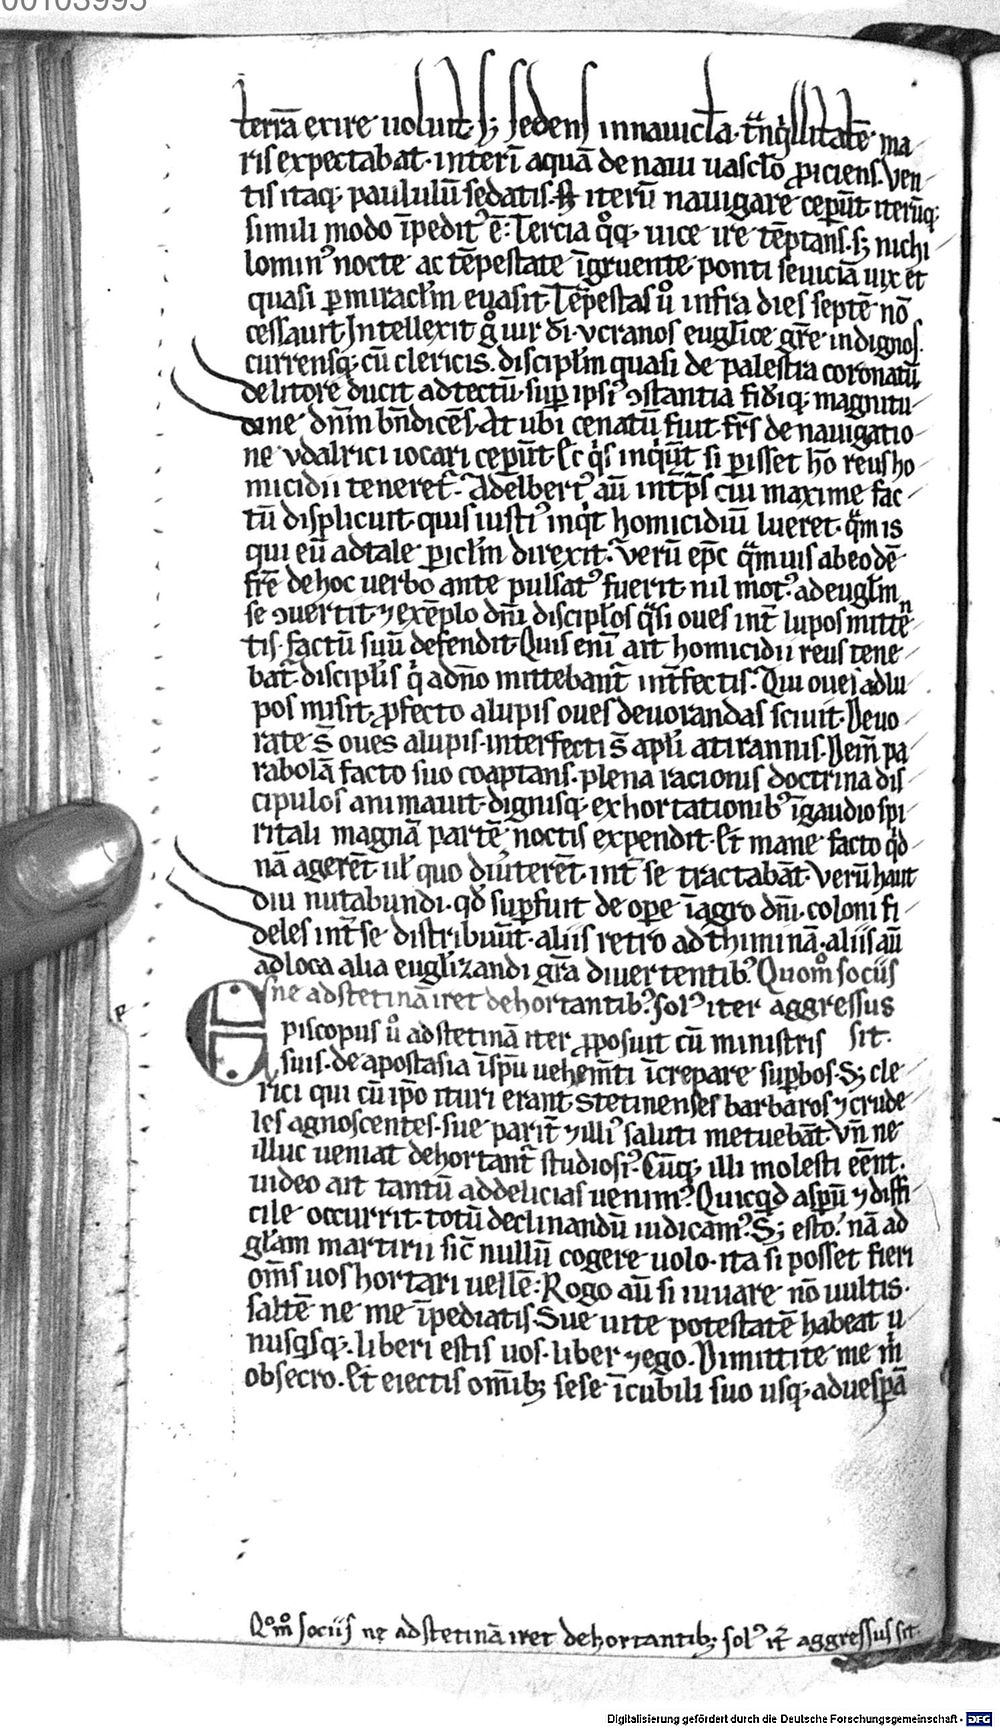 00103995
terrā exire uoluit· s; sedens in nauicl̄a· tᷓnqͥllitatē ma
ris expectabat· interī aquā de naui uascl̄o ꝓiciens. Ven
tis itaq; paululū sedatis. iterū nauigare ceperūt iterūq;
simili modo īpedit᷒ ē: Tercia qͦq; uice ire tēptans. s; nichi
lomin᷒ nocte ac tēpestate īgruente· ponti seuiciā uix et
quasi ꝑ miracl̄m euasit· Tēpestas u̾o infra dies septē nō
cessauit. Intellexit gͦ uir dī· vcranos eugl̄ice gr̄e· indignos.
currensq; cū clericis. discipl̄m quasi de palestra coronatū
de litore ducit ad tectū· suꝑ ipsi᷒ ꝯstantia fideiq; magnitu
dine dn̄m bn̄dicēs. At ubi cenatū fuit fr̄s de nauigatio
ne vdalrici iocari ceperūt· Et qͥs inqͥūt si perisset hō reus ho
micidii teneret᷒. Adelbert᷒ aū int̄p̄s cui maxime fac
tū displicuit· quis iusti᷒ inqͥt homicidiū lueret· qᷓm is
qui eū ad tale ꝑicl̄m direxit· Verū ep̄c qᷓmuis ab eodē
fr̄e de hoc uerbo ante pulsat᷒ fuerit· nil mot᷒· ad eugl̄m
se ꝯuertit· ⁊ exēplo dn̄i discipl̄os qͣsi oues int̄ lupos mittē
tis· factū suū defendit· Quis enī ait homicidii reus tene
bat᷒ discipl̄is qͥ a dn̄o mittebant᷒ int̄fectis· Qui oues ad lu
pos misit· ꝓfecto a lupis oues deuorandas sciuit· Deuo
rate s̄ oues a lupis· interfecti s̄ apl̄i a tirannis· Vem̄ pa
rabolā facto suo coaptans· plena racionis doctrina dis
cipulos animauit· dignisq; exhortationib᷒ ī gaudio spi
ritali magnā partē noctis expendit· Et mane facto qͥd
nā agerēt ul̄ quo diu̾terēt· int̄ se tractabāt· Verū haut
diu nutabundi· qd̄ suꝑfuit de oꝑe ī agro dn̄i· coloni fi
deles int̄ se distribuūt· aliis retro ad thiminā· aliis aū
ad loca alia eugl̄izandi gr̄a diuertentib᷒· Quom̊ sociis
ne ad stetinā iret dehortantib᷒ sol᷒ iter aggressus
Episcopus u̾o ad stetinā iter ꝓposuit cū ministris sit·
suis· de apostasia ī sp̄u uehem̄ti īcrepare suꝑbos· S; cle
rici qui cū ip̄o ituri erant· stetinenses barbaros ⁊ crude
les agnoscentes· sue parit̄ ⁊ illi᷒ saluti metuebāt· Vn̄ ne
illuc ueniat dehortant᷒ studiosi᷒· Cūq; illi molesti eēnt·
uideo ait tantū ad delicias uenim᷒· Quicqͥd aspū ⁊ diffi
cile occurrit· totū declinandū iudicam᷒· S; esto· nā ad
gl̄am martirii sic̄ nullū cogere uolo· ita si posset fieri
om̄s uos hortari uellē: Rogo aū si iuuare nō uultis·
saltē ne me īpediatis· Sue uite potestatē habeat u
nusqͥsq;· liberi estis uos· liber ⁊ ego· Dimittite me m̄
obsecro· Et eiectis om̄ib; sese ī cubili suo usq; ad uesꝑā
Qͦm̊ sociis ne ad stetinā iret dehortantib; sol᷒ it̄ aggressus sit·
Digitalisierung gefördert durch die Deutsche Forschungsgemeinschaft - DFG